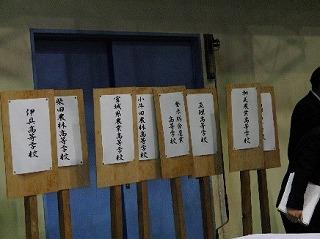 伊具高等学校
柴田農林高等学校
宮城県農業高等学校
小牛田農林高等学校
亘理高等学校
加美農業高等学校